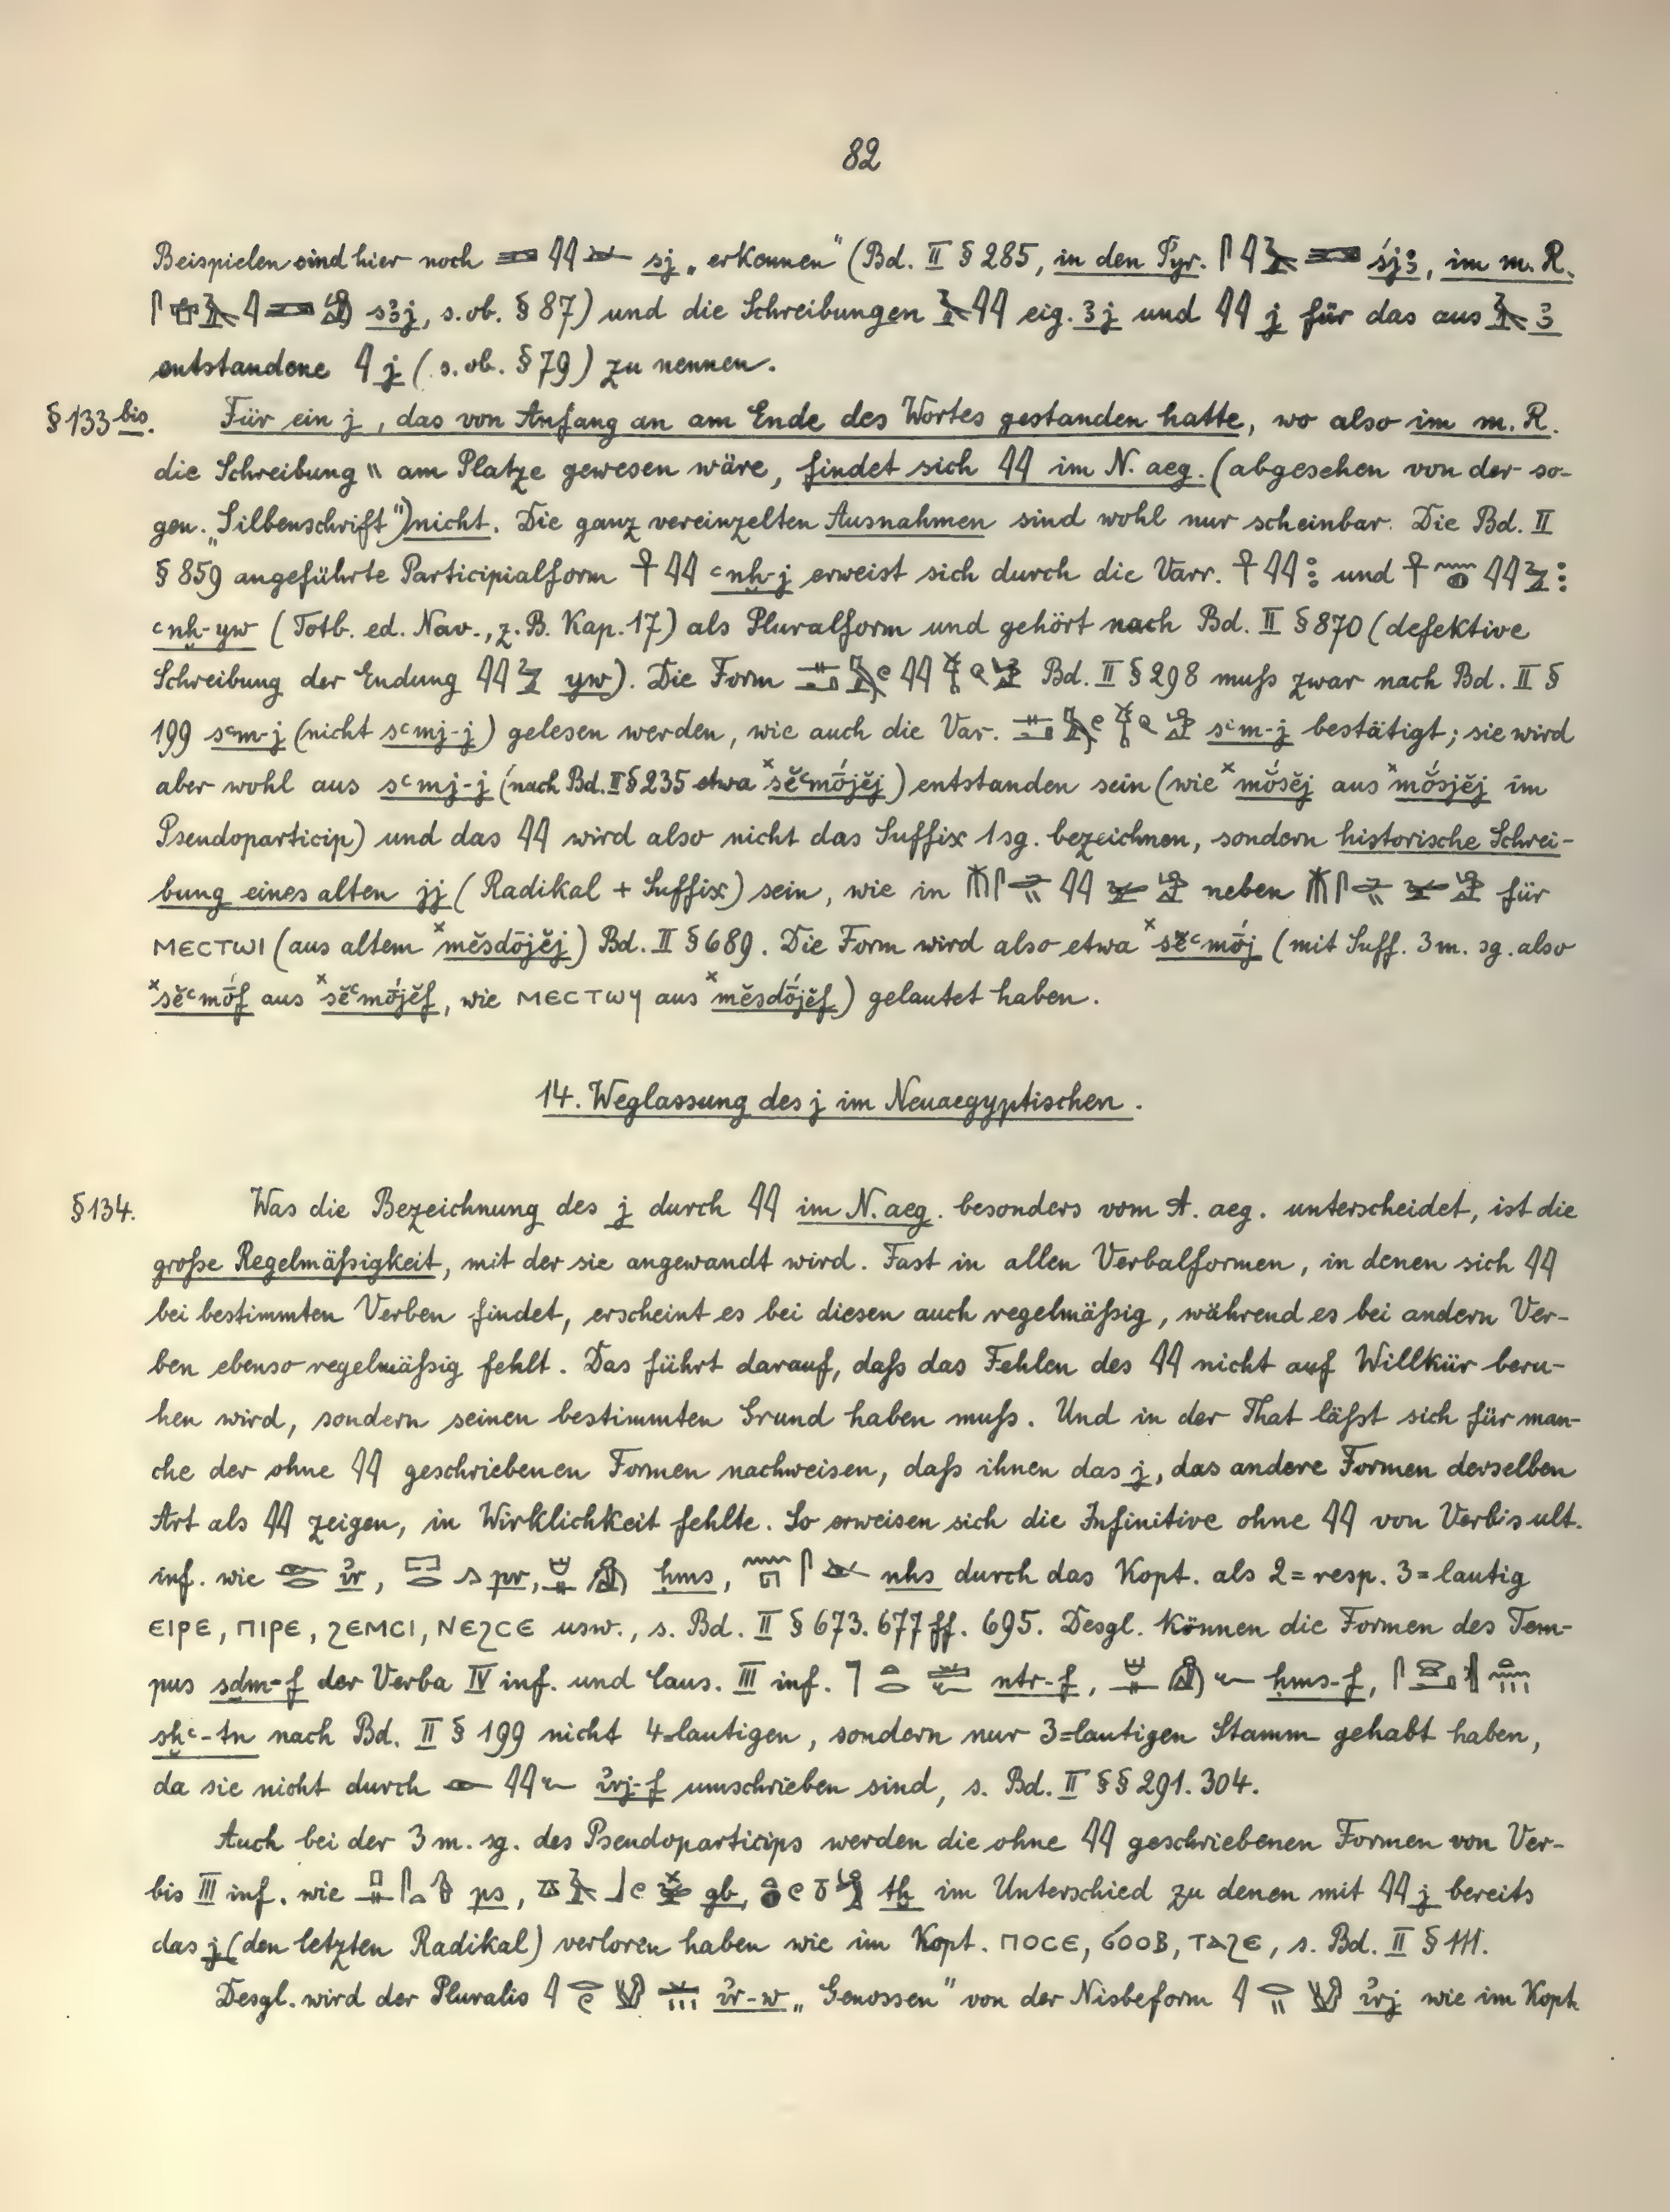 82
Beispielen sind hier noch 𓇌 sj „erkennen“ (Bd. II § 285, in den Pyr. śjꜣ, im m. R.
sꜣj, s. ob. § 87) und die Schreibungen 𓄿𓇌 eig. ꜣj und 𓇌 j für das aus 𓄿 ꜣ
entstandene 𓇋 j (s. ob. § 79) zu nennen.
§ 133 bis. Für ein j, das von Anfang an am Ende des Wortes gestanden hatte, wo also im m. R.
die Schreibung 𓏭 am Platze gewesen wäre, findet sich 𓇌 im N. aeg. (abgesehen von der so-
gen. „Silbenschrift“) nicht. Die ganz vereinzelten Ausnahmen sind wohl nur scheinbar. Die Bd. II
§ 859 angeführte Participialform 𓋹𓇌 ꜥnḫ-j erweist sich durch die Varr. 𓋹𓇌 und 𓋹𓈖𓐍𓇌𓅱
ꜥnḫ-yw (Totb. ed. Nav., z. B. Kap. 17) als Pluralform und gehört nach Bd. II § 870 (defektive
Schreibung der Endung 𓇌𓅱 yw). Die Form Bd. II § 298 muß zwar nach Bd. II §
199 sꜥm-j (nicht sꜥmj-j) gelesen werden, wie auch die Var. sꜥm-j bestätigt; sie wird
aber wohl aus sꜥmj-j (nach Bd. II § 235 etwa ˣsĕꜥmōjĕj) entstanden sein (wie ˣmŏsĕj aus ˣmŏsjĕj im
Pseudoparticip) und das 𓇌 wird also nicht das Suffix 1 sg. bezeichnen, sondern historische Schrei-
bung eines alten jj (Radikal + Suffix) sein, wie in neben für
ⲘⲈⲤⲦⲰⲒ (aus altem ˣmĕsdōjĕj) Bd. II § 689. Die Form wird also etwa ˣsĕꜥmōj (mit Suff. 3 m. sg. also
ˣsĕꜥmōf aus ˣsĕꜥmōjĕf, wie ⲘⲈⲤⲦⲰϤ aus ˣmĕsdōjĕf) gelautet haben.
14. Weglassung des j im Neuaegyptischen.
§ 134. Was die Bezeichnung des j durch 𓇌 im N. aeg. besonders vom A. aeg. unterscheidet, ist die
große Regelmäßigkeit, mit der sie angewandt wird. Fast in allen Verbalformen, in denen sich 𓇌
bei bestimmten Verben findet, erscheint es bei diesen auch regelmäßig, während es bei andern Ver-
ben ebenso regelmäßig fehlt. Das führt darauf, daß das Fehlen des 𓇌 nicht auf Willkür beru-
hen wird, sondern seinen bestimmten Grund haben muß. Und in der That läßt sich für man-
che der ohne 𓇌 geschriebenen Formen nachweisen, daß ihnen das j, das andere Formen derselben
Art als 𓇌 zeigen, in Wirklichkeit fehlte. So erweisen sich die Infinitive ohne 𓇌 von Verbis ult.
inf. wie ỉr, 𓉐𓂋𓂻 pr, ḥms, nhs durch das Kopt. als 2=resp. 3=lautig
ⲈⲒⲢⲈ, ⲠⲒⲢⲈ, ϨⲈⲘⲤⲒ, ⲚⲈϨⲤⲈ usw., s. Bd. II § 673. 677 ff. 695. Desgl. können die Formen des Tem-
pus sḏm-f der Verba IV inf. und Caus. III inf. ntr-f, ḥms-f,
sḫꜥ-tn nach Bd. II § 199 nicht 4=lautigen, sondern nur 3=lautigen Stamm gehabt haben,
da sie nicht durch 𓁹𓇌𓆑 ỉrj-f umschrieben sind, s. Bd. II §§ 291. 304.
Auch bei der 3 m. sg. des Pseudoparticips werden die ohne 𓇌 geschriebenen Formen von Ver-
bis III inf. wie ps, gb, tḫ im Unterschied zu denen mit 𓇌 j bereits
das j (den letzten Radikal) verloren haben wie im Kopt. ⲠⲞⲤⲈ, ϬⲞⲞⲂ, ⲦⲀϨⲈ, s. Bd. II § 111.
Desgl. wird der Pluralis ỉr-w „Genossen“ von der Nisbeform ỉrj wie im Kopt.